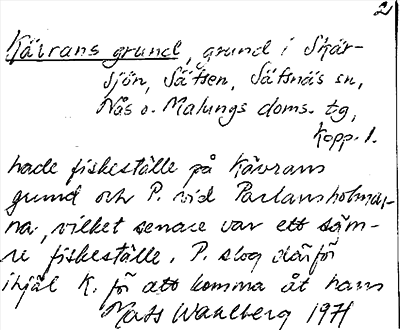 2
Kävrans grund, grund i Skär-
sjön, Säfsen, Säfsnäs sn,
Nås o. Malungs doms. tg,
Kopp. l.
hade fiskeställe på Kävrans
grund och P. vid Parlansholmar-
na, vilket senare var ett säm-
re fiskeställe. P. slog därför
ihjäl K. för att komma åt hans
Mats Wahlberg 1971